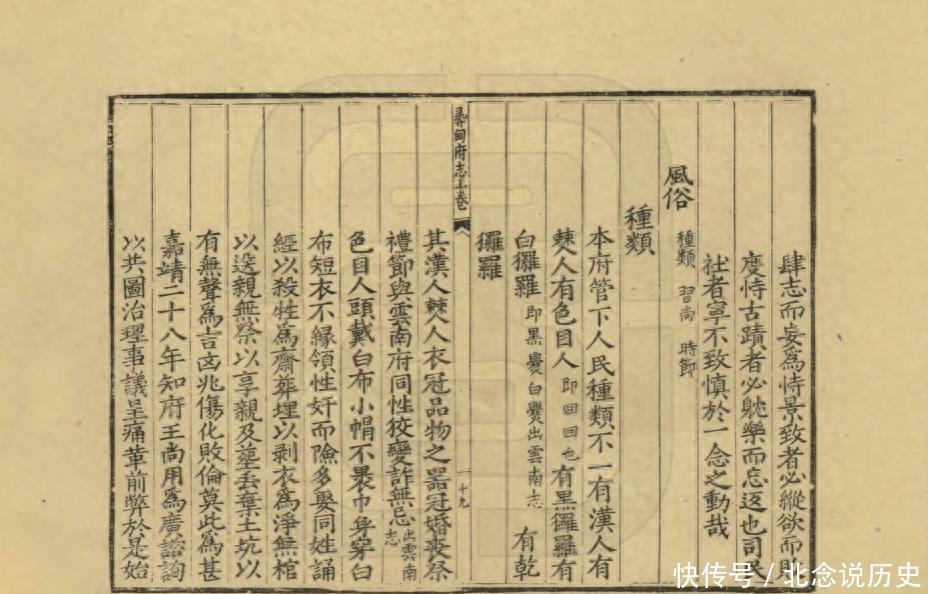 肆志而妄爲恃景致者必縱欲而敗
度恃古蹟者必躭樂而忘返也司民
社者寧不致慎於一念之動哉
風俗
種類 習尚 時節
種類
本府管下人民種類不一有漢人有
僰人有色目人即回回也有黑玀羅有
白玀羅即黑爨白爨出雲南志 有乾
玀羅
尋甸府志上卷
十九
其漢人僰人衣冠品物之器冠婚喪祭
禮節與雲南府同性狡變詐無忌出雲南志
色目人頭戴白布小帽不裹巾身穿白
布短衣不緣領性奸而險多娶同姓誦
經以殺牲爲齋葬埋以剥衣爲淨無棺
以送親無祭以享親及塟丢棄土坑以
有無聲爲吉凶兆傷化敗倫莫此爲甚
嘉靖二十八年知府王尚用爲廣諮詢
以共圖治理事議呈痛革前弊於是始
快传号 / 北念说历史